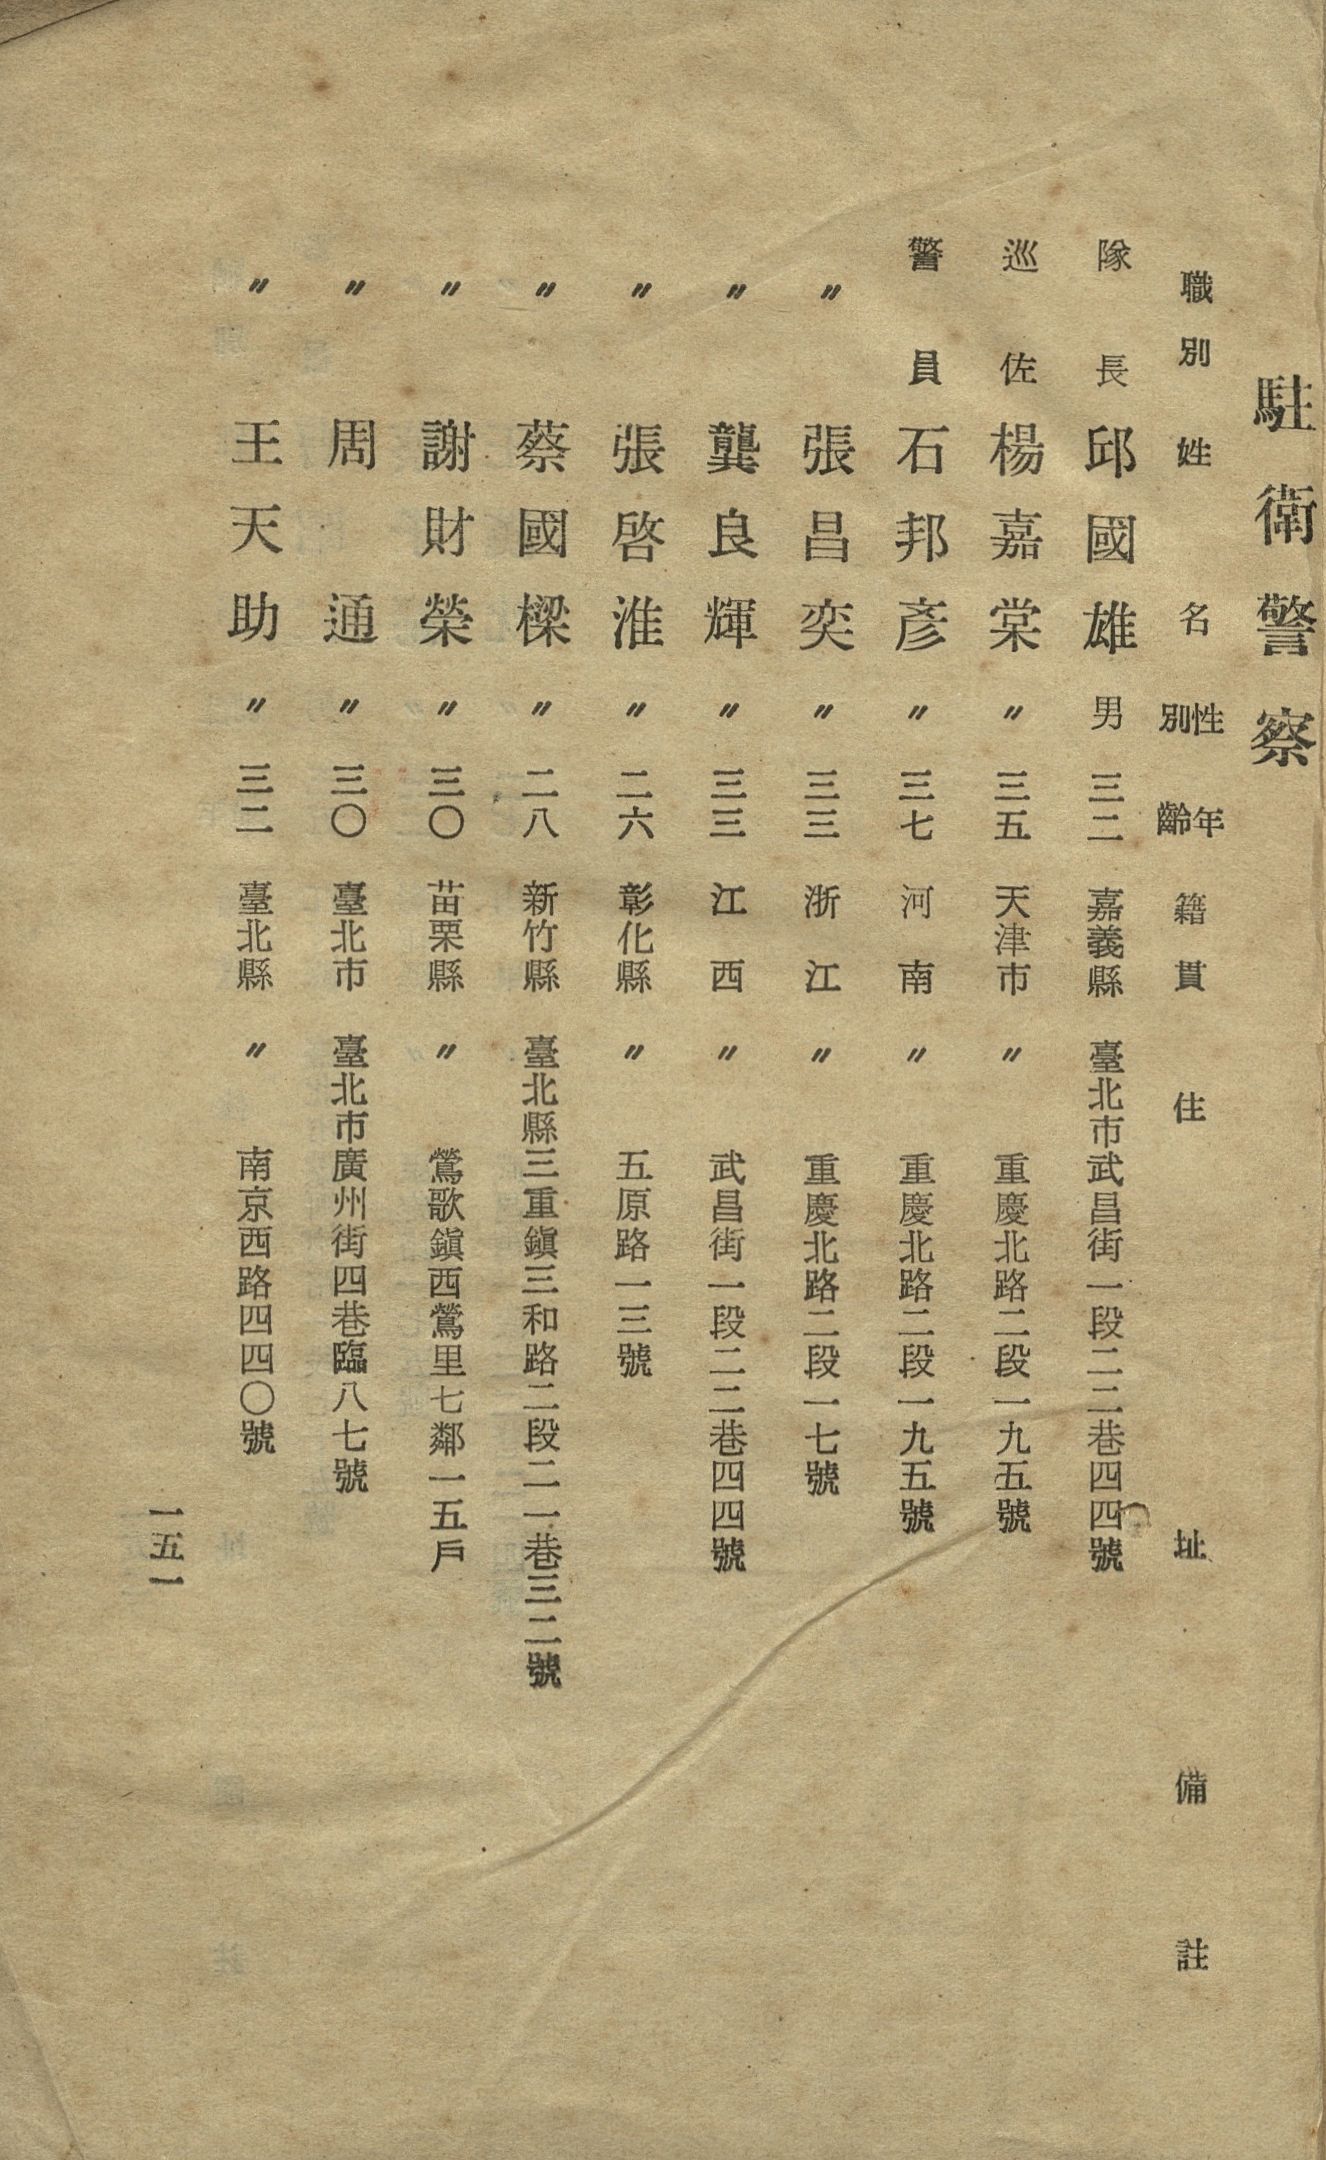 駐衛警察
職別 姓名 性別 年齡 籍貫 住址 備註
隊長 邱國雄 男 三二 嘉義縣 臺北市武昌街一段二二巷四四號
巡佐 楊嘉棠 〃 三五 天津市 〃 重慶北路二段一九五號
警員 石邦彥 〃 三七 河南 〃 重慶北路二段一九五號
〃 張昌奕 〃 三三 浙江 〃 重慶北路二段一七號
〃 龔良輝 〃 三三 江西 〃 武昌街一段二二巷四四號
〃 張啓淮 〃 二六 彰化縣 〃 五原路一三號
〃 蔡國樑 〃 二八 新竹縣 臺北縣三重鎭三和路二段二一巷三二號
〃 謝財榮 〃 三〇 苗栗縣 〃 鶯歌鎭西鶯里七鄰一五戶
〃 周通 〃 三〇 臺北市 臺北市廣州街四巷臨八七號
〃 王天助 〃 三二 臺北縣 〃 南京西路四四〇號
一五一